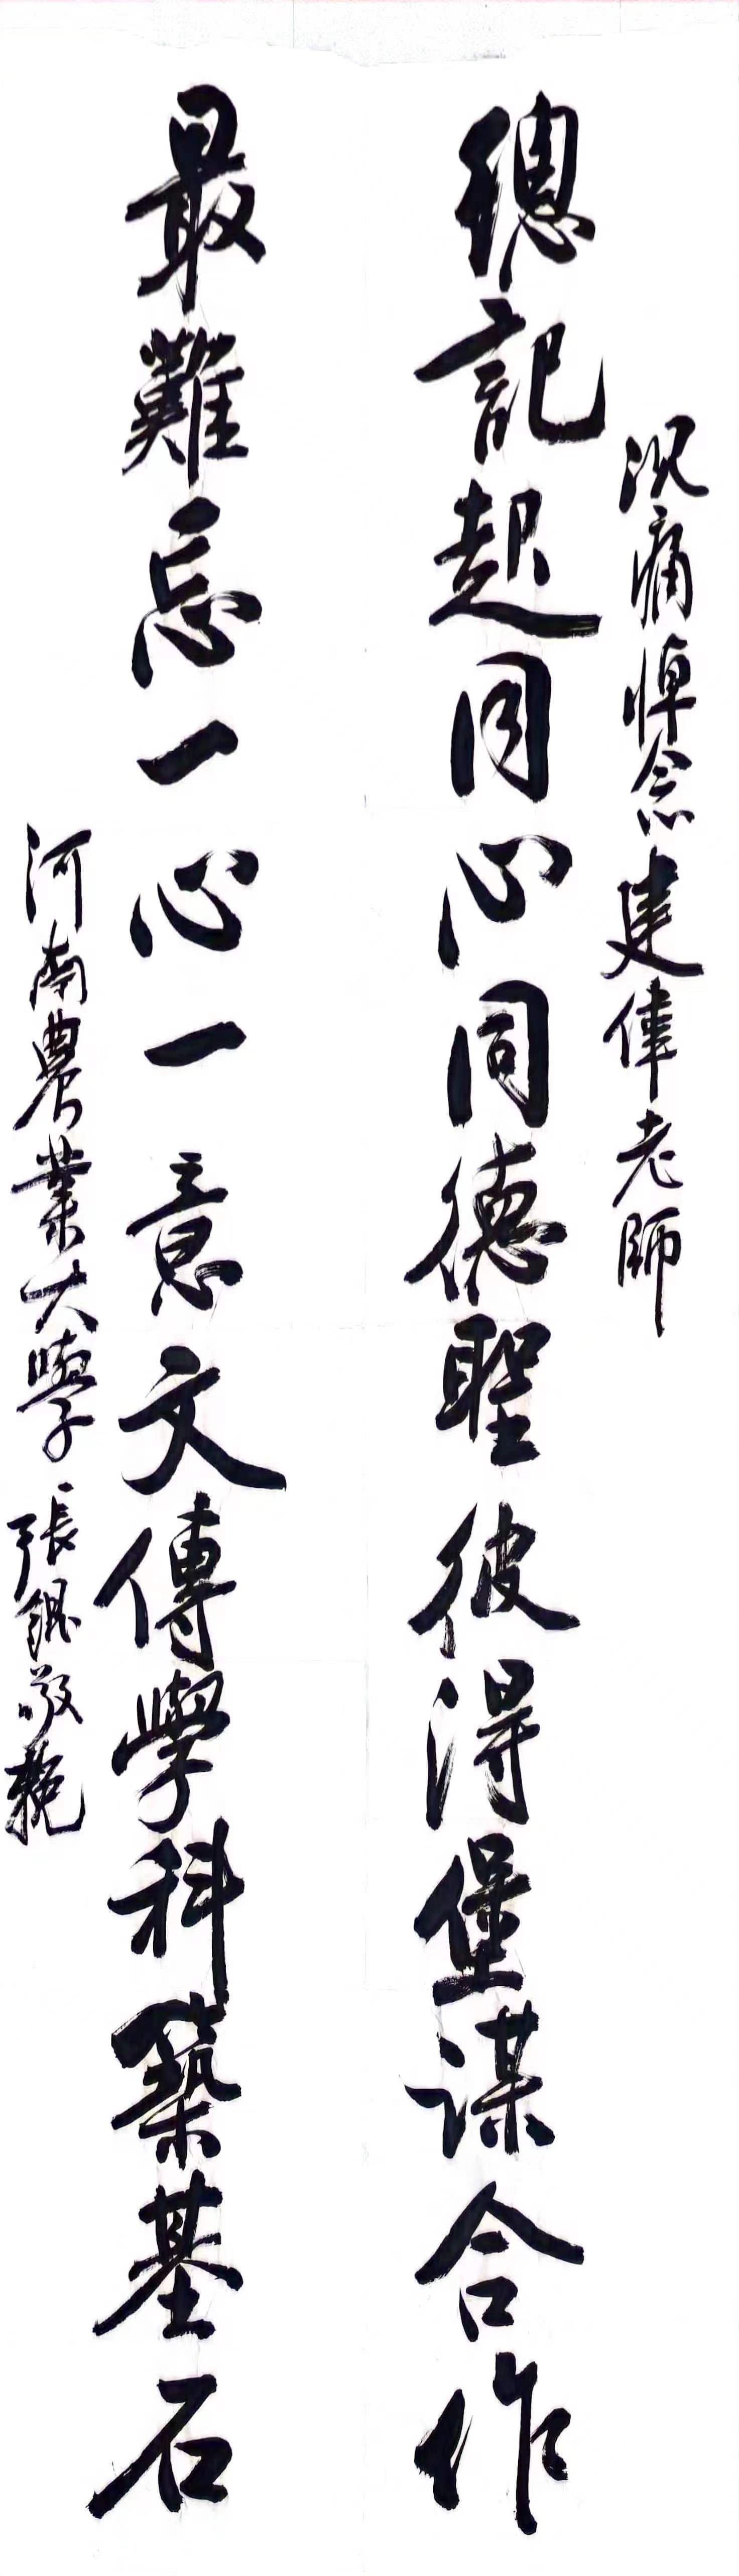 沉痛悼念建偉老師
總記起同心同德聖彼得堡謀合作
最難忘一心一意文傳學科築基石
河南農業大學 張錕敬輓